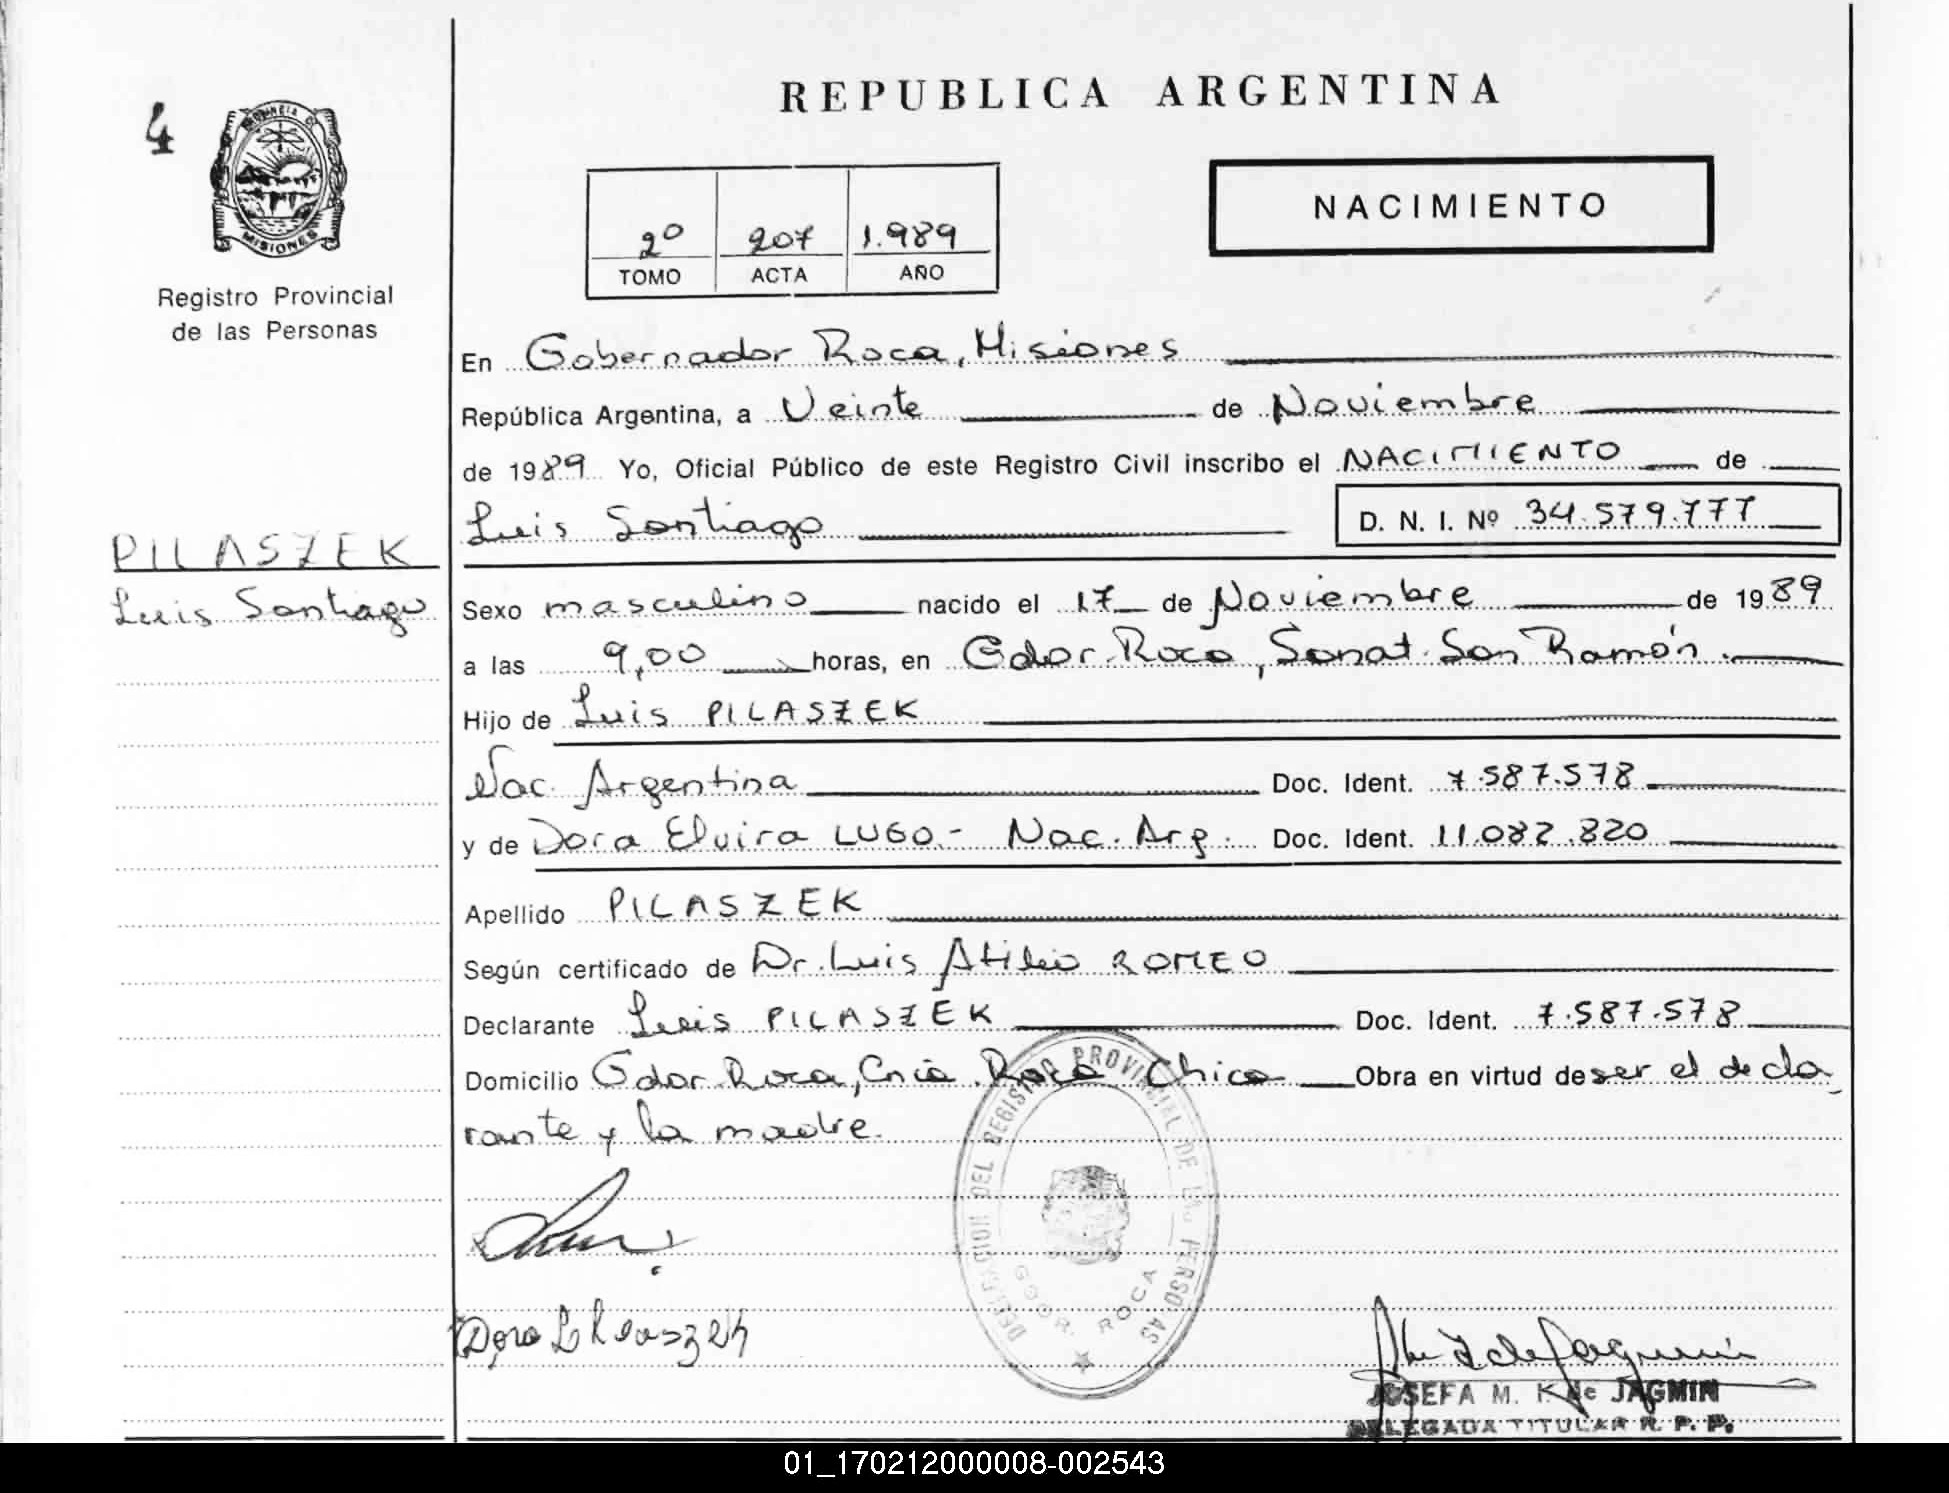 REPUBLICA ARGENTINA
4
PROVINCIA DE
MISIONES
Registro Provincial
de las Personas
2º 207 1.989
TOMO ACTA AÑO
NACIMIENTO
En Gobernador Roca, Misiones
República Argentina, a Veinte de Noviembre
de 1989 Yo, Oficial Público de este Registro Civil inscribo el NACIMIENTO de
Luis Santiago D. N. I. Nº 34.579.777
PILASZEK
Luis Santiago
Sexo masculino nacido el 17 de Noviembre de 1989
a las 9,00 horas, en Gdor. Roca, Sanat. San Ramón.
Hijo de Luis PILASZEK
Nac. Argentina Doc. Ident. 7.587.578
y de Dora Elvira LUGO.- Nac. Arg. Doc. Ident. 11.082.820
Apellido PILASZEK
Según certificado de Dr. Luis Atilio ROMEO
Declarante Luis PILASZEK Doc. Ident. 7.587.578
Domicilio Gdor. Roca, Cnia. Roca Chica Obra en virtud de ser el decla-
rante y la madre.
DELEGACION DEL REGISTRO PROVINCIAL DE LAS PERSONAS
GDOR. ROCA
Dora
JOSEFA M. K. de JAGMIN
DELEGADA TITULAR R. P. P.
01_170212000008-002543